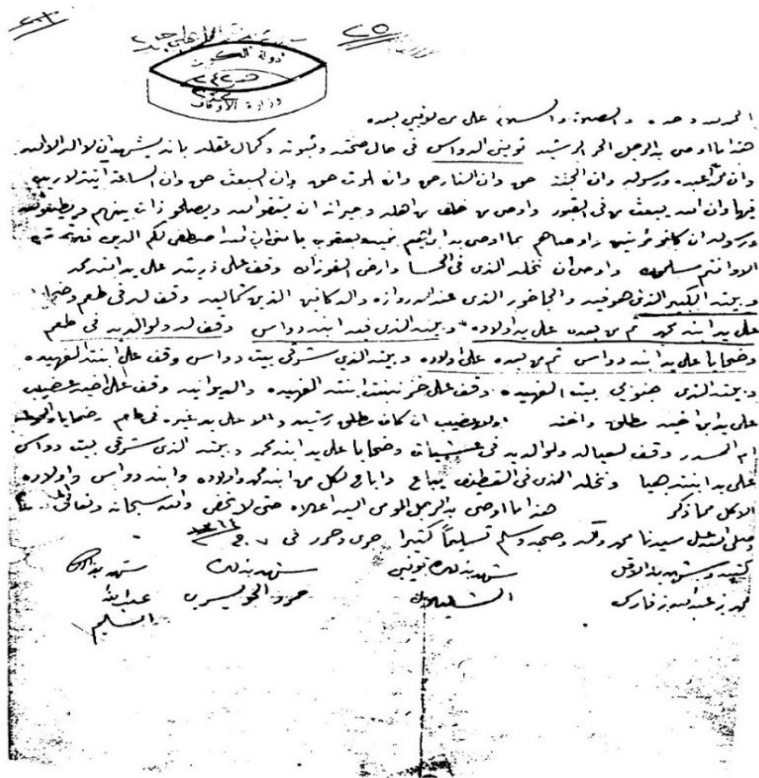 ٢٥
دولة الكويت
وزارة الأوقاف
الحمد وحده والصلاة والسلام على من لا نبي بعده
هذا ما اوصى به الرجل الحر الرشيد تويني الدواس في حال صحته وثبوته وكمال عقله بانه يشهد ان لا اله الا الله
وان محمد عبده ورسوله وان الجنة حق وان النار حق وان الموت حق وان البعث حق وان الساعة اتية لا ريب
فيها وان الله يبعث من في القبور واوصى من خلف من اهله وجيرانه ان يتقوا الله ويصلحو ذات بينهم ويطيعو الله
ورسوله ان كانو مؤمنين واوصاهم بما اوصى به ابراهيم بنيه ويعقوب يا بني ان الله اصطفى لكم الدين فلا تموتن
الا وانتم مسلمون واوصى ان نخله الذي في الحسا وارض الفوزان وقف على ذريته على يد ابنه محمد
وبيته الكبير الذي هو فيه والجاخور الذي عند الدروازه والدكانين الذي شماليه وقف له في طعم وضحايا
على يد ابنه محمد ثم من بعده على يد اولاده وبيته الذي فيه ابنه دواس وقف له ولوالديه في طعم
وضحايا على يد ابنه دواس ثم من بعده على اولاده وبيته الذي شرقي بيت دواس وقف على ابنته الفهيده
وبيته الذي جنوبي بيت الفهيده وقف على بنت ابنته الفهيده والديوانيه وقف على اخيه عضيب
على يد ابن اخيه مطلق واخته ان كان مطلق رشيد والا على يد غيره في طعم وضحايا
ام الحسدر وقف لعياله ولوالديه في عشيات وضحايا على يد ابنه محمد وبيته الذي شرقي بيت دواس
على يد ابنته هيا ونخله الذي في القطيف يباع واباح لكل من ابنه محمد واولاده وابنه دواس واولاده
الاكل مما ذكر هذا ما اوصى به الرجل الموصى اليه اعلاه حتى لا يخفى والله سبحانه وتعالى
وصلى الله على سيدنا محمد واله وصحبه وسلم تسليماً كثيرا جرى وحرر في ٧
كتبه وشهد به الاقل شهد بذلك تويني شهد بذلك شهد بذلك
محمد بن عبدالله بن فارس حمود الخويسري عبدالله
السليم